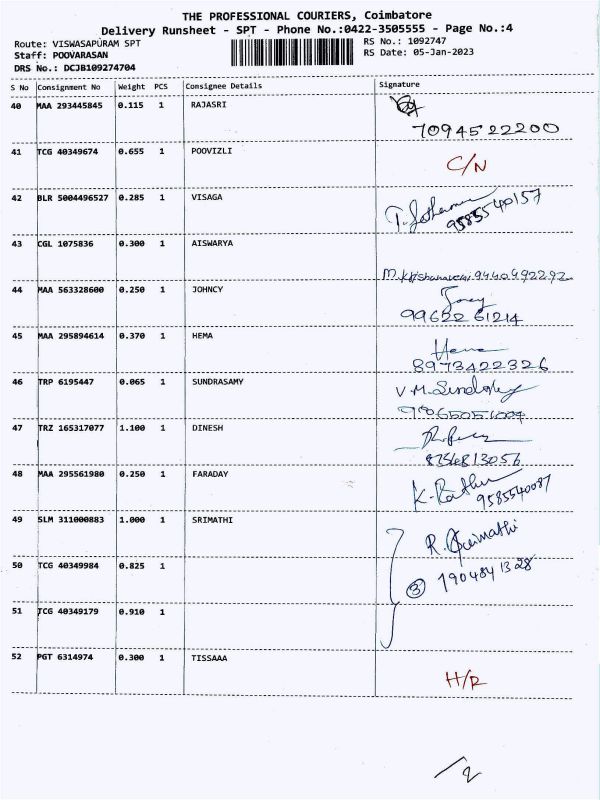 THE PROFESSIONAL COURIERS, Coimbatore
Delivery Runsheet - SPT - Phone No.:0422-3505555 - Page No.:4
Route: VISWASAPURAM SPT RS No.: 1092747
Staff: POOVARASAN RS Date: 05-Jan-2023
DRS No.: DCJB109274704
S No Consignment No Weight PCS Consignee Details Signature
40 MAA 293445845 0.115 1 RAJASRI
7094522200
41 TCG 40349674 0.655 1 POOVIZLI C/N
42 BLR 5004496527 0.285 1 VISAGA
9585540157
43 CGL 1075836 0.300 1 AISWARYA
9440992292
44 MAA 563328600 0.250 1 JOHNCY
9962261214
45 MAA 295894614 0.370 1 HEMA Hema
8973422326
46 TRP 6195447 0.065 1 SUNDRASAMY V.M.
47 TRZ 165317077 1.100 1 DINESH
48 MAA 295561980 0.250 1 FARADAY
9585540087
49 SLM 311000883 1.000 1 SRIMATHI R.
50 TCG 40349984 0.825 1 3
51 TCG 40349179 0.910 1
52 PGT 6314974 0.300 1 TISSAAA H/R